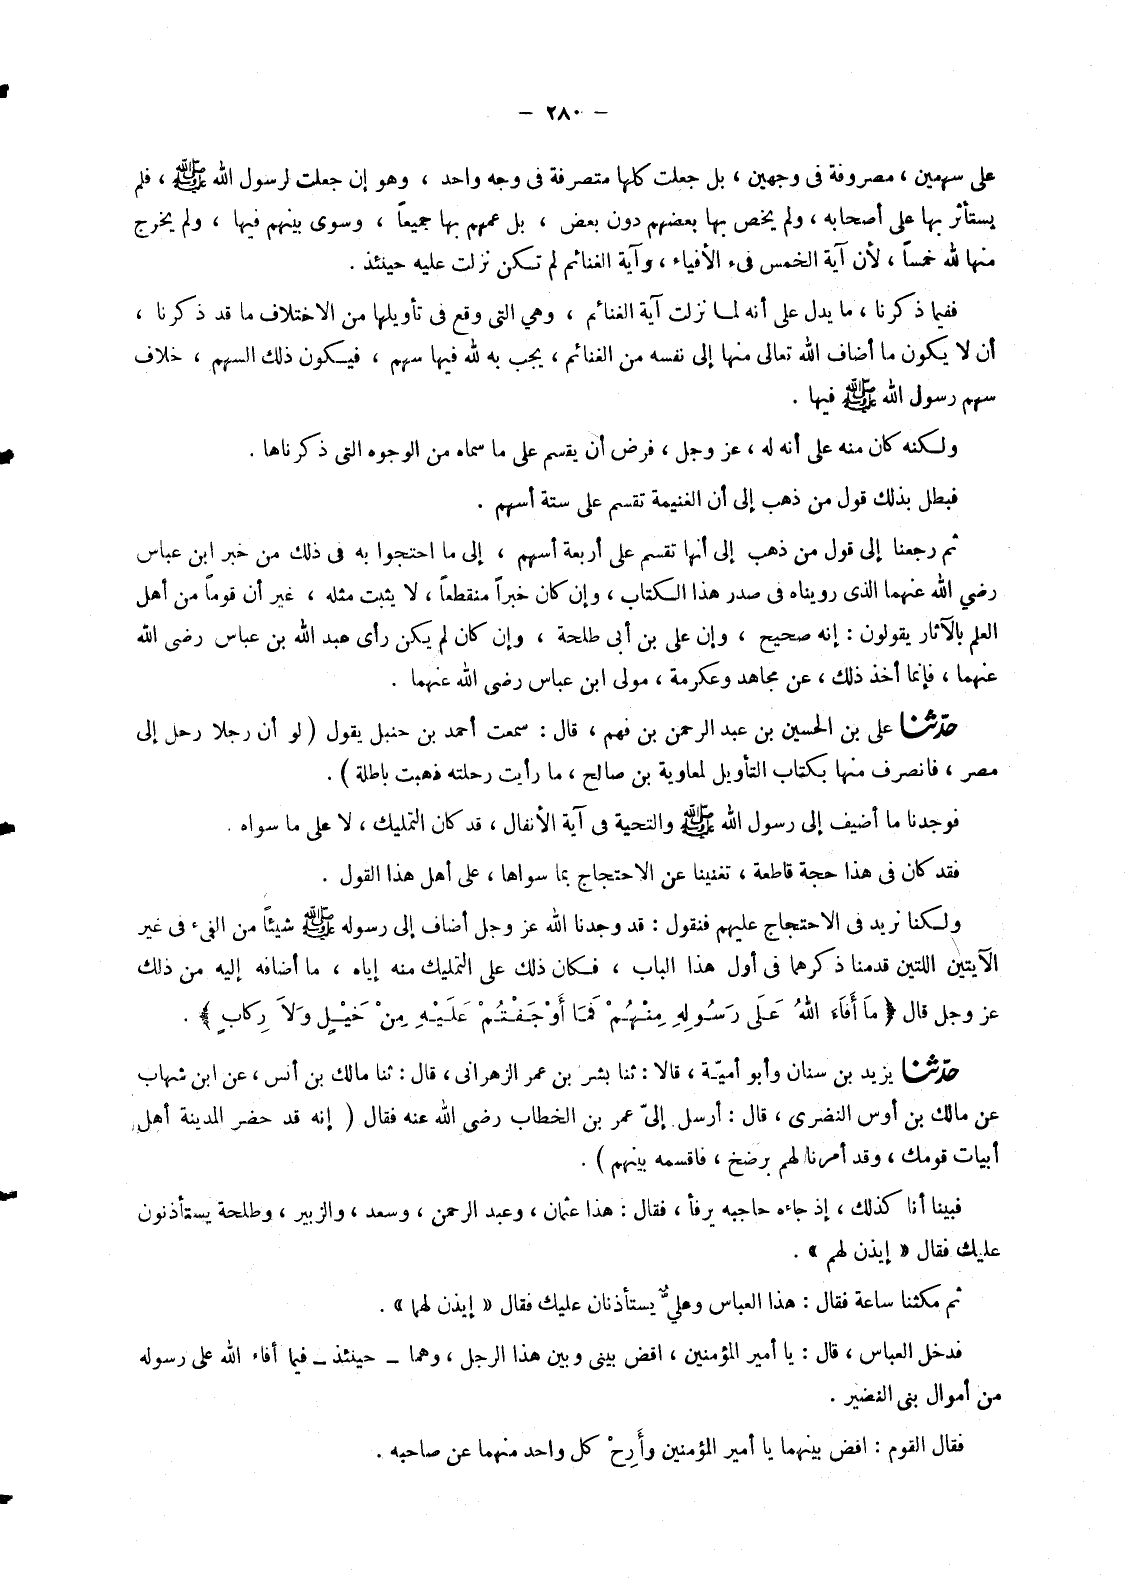 − ٢٨٠ −
على سهمين ، مصروفة فى وجهين ، بل جعلت كلها متصرفة فى وجه واحد ، وهو إن جعلت لرسول الله ﷺ ، فلم
يستأثر بها على أصحابه ، ولم يخص بها بعضهم دون بعض ، بل عمهم بها جميعاً ، وسوى بينهم فيها ، ولم يخرج
منها لله خمساً ، لأن آية الخمس فىء الأفياء ، وآية الغنائم لم تكن نزلت عليه حينئذ .
ففيما ذكرنا ، ما يدل على أنه لما نزلت آية الغنائم ، وهي التى وقع فى تأويلها من الاختلاف ما قد ذكرنا ،
أن لا يكون ما أضاف الله تعالى منها إلى نفسه من الغنائم ، يجب به لله فيها سهم ، فيكون ذلك السهم ، خلاف
سهم رسول الله ﷺ فيها .
ولكنه كان منه على أنه له ، عز وجل ، فرض أن يقسم على ما سماه من الوجوه التى ذكرناها .
فبطل بذلك قول من ذهب إلى أن الغنيمة تقسم على ستة أسهم .
ثم رجعنا إلى قول من ذهب إلى أنها تقسم على أربعة أسهم ، إلى ما احتجوا به فى ذلك من خبر ابن عباس
رضي الله عنهما الذى رويناه فى صدر هذا الكتاب ، وإن كان خبراً منقطعاً ، لا يثبت مثله ، غير أن قوماً من أهل
العلم بالآثار يقولون : إنه صحيح ، وإن على بن أبى طلحة ، وإن كان لم يكن رأى عبد الله بن عباس رضى الله
عنهما ، فإنما أخذ ذلك ، عن مجاهد وعكرمة ، مولى ابن عباس رضى الله عنهما .
حدّثنا على بن الحسين بن عبد الرحمن بن فهم ، قال : سمعت أحمد بن حنبل يقول ( لو أن رجلا رحل إلى
مصر ، فانصرف منها بكتاب التأويل لمعاوية بن صالح ، ما رأيت رحلته ذهبت باطلة ) .
فوجدنا ما أضيف إلى رسول الله ﷺ والتحية فى آية الأنفال ، قد كان التمليك ، لا على ما سواه .
فقد كان فى هذا حجة قاطعة ، تغنينا عن الاحتجاج بما سواها ، على أهل هذا القول .
ولكنا نريد فى الاحتجاج عليهم فنقول : قد وجدنا الله عز وجل أضاف إلى رسوله ﷺ شيئاً من الفىء فى غير
الآيتين اللتين قدمنا ذكرهما فى أول هذا الباب ، فكان ذلك على التمليك منه إياه ، ما أضافه إليه من ذلك
عز وجل قال ﴿ مَا أَفَاءَ اللهُ عَلَى رَسُولِهِ مِنْهُمْ فَمَا أَوْجَفْتُمْ عَلَيْهِ مِنْ خَيْلٍ وَلاَ رِكَابٍ ﴾ .
حدّثنا يزيد بن سنان وأبو أميّة ، قالا : ثنا بشر بن عمر الزهرانى ، قال : ثنا مالك بن أنس ، عن ابن شهاب
عن مالك بن أوس النضرى ، قال : أرسل إلىّ عمر بن الخطاب رضى الله عنه فقال ( إنه قد حضر المدينة أهل
أبيات قومك ، وقد أمرنا لهم برضخ ، فاقسمه بينهم ) .
فبينا أنا كذلك ، إذ جاءه حاجبه يرفأ ، فقال : هذا عثمان ، وعبد الرحمن ، وسعد ، والزبير ، وطلحة يستأذنون
عليك فقال « إيذن لهم » .
ثم مكثنا ساعة فقال : هذا العباس وعلىٌّ يستأذنان عليك فقال « إيذن لهما » .
فدخل العباس ، قال : يا أمير المؤمنين ، اقض بينى وبين هذا الرجل ، وهما ـ حينئذ ـ فيما أفاء الله على رسوله
من أموال بنى النضير .
فقال القوم : اقض بينهما يا أمير المؤمنين وأَرِحْ كل واحد منهما عن صاحبه .